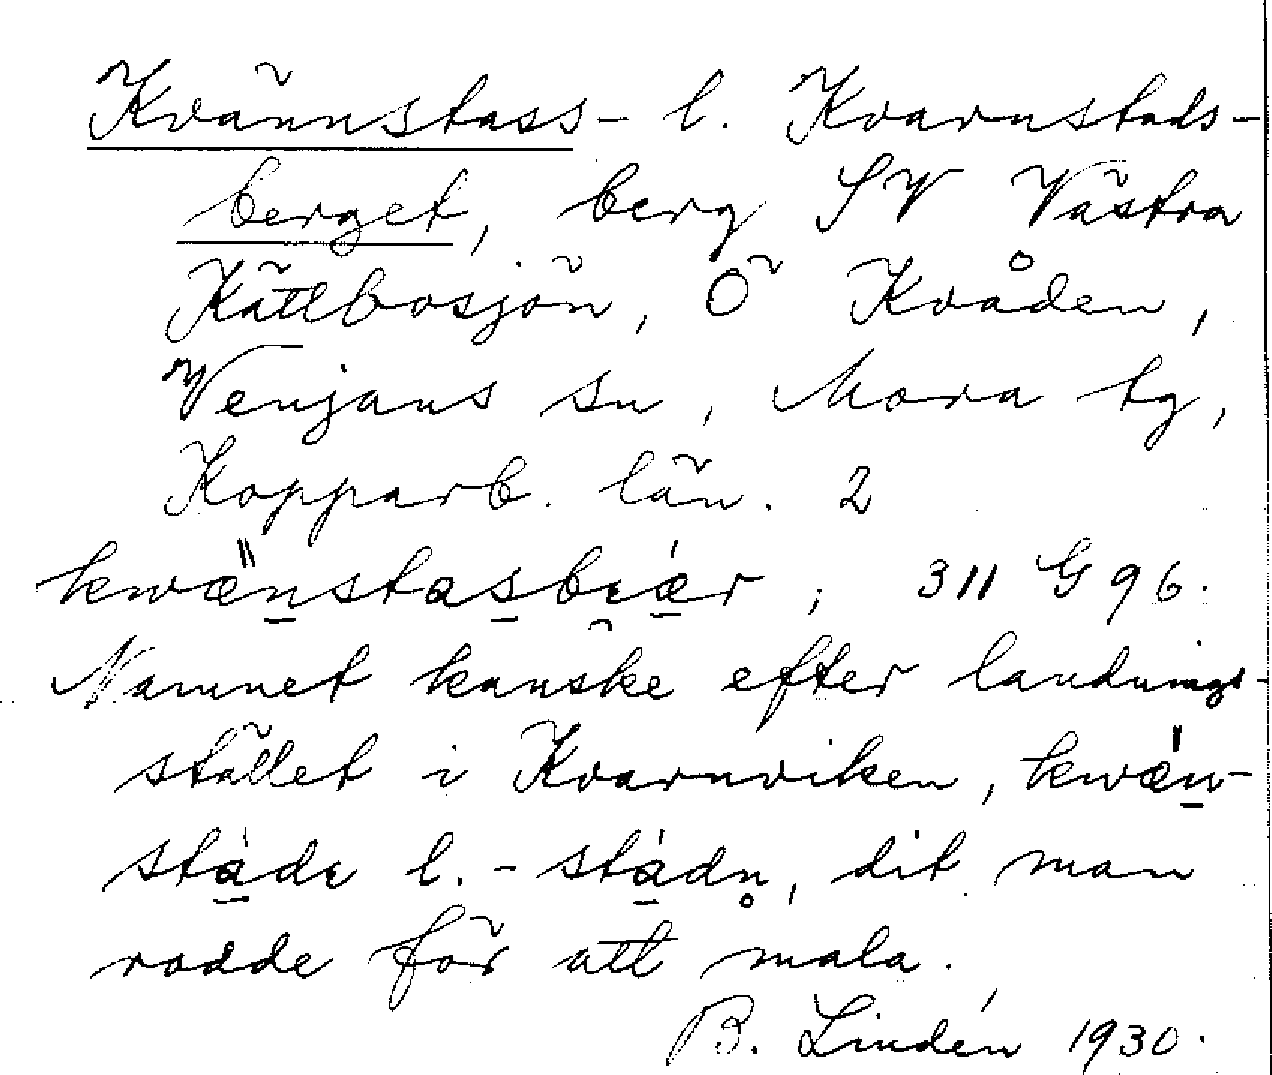 Kvännstass- l. Kvarnstads-
berget, berg SV Västra
Kättbosjön, Ö Kvåden,
Venjans sn, Mora tg,
Kopparb. län. 2
311 G 96.
Namnet kanske efter landnings-
stället i Kvarnviken, kwæn-
städe l. -städn̥, dit man
rodde för att mala.
B. Lindén 1930.